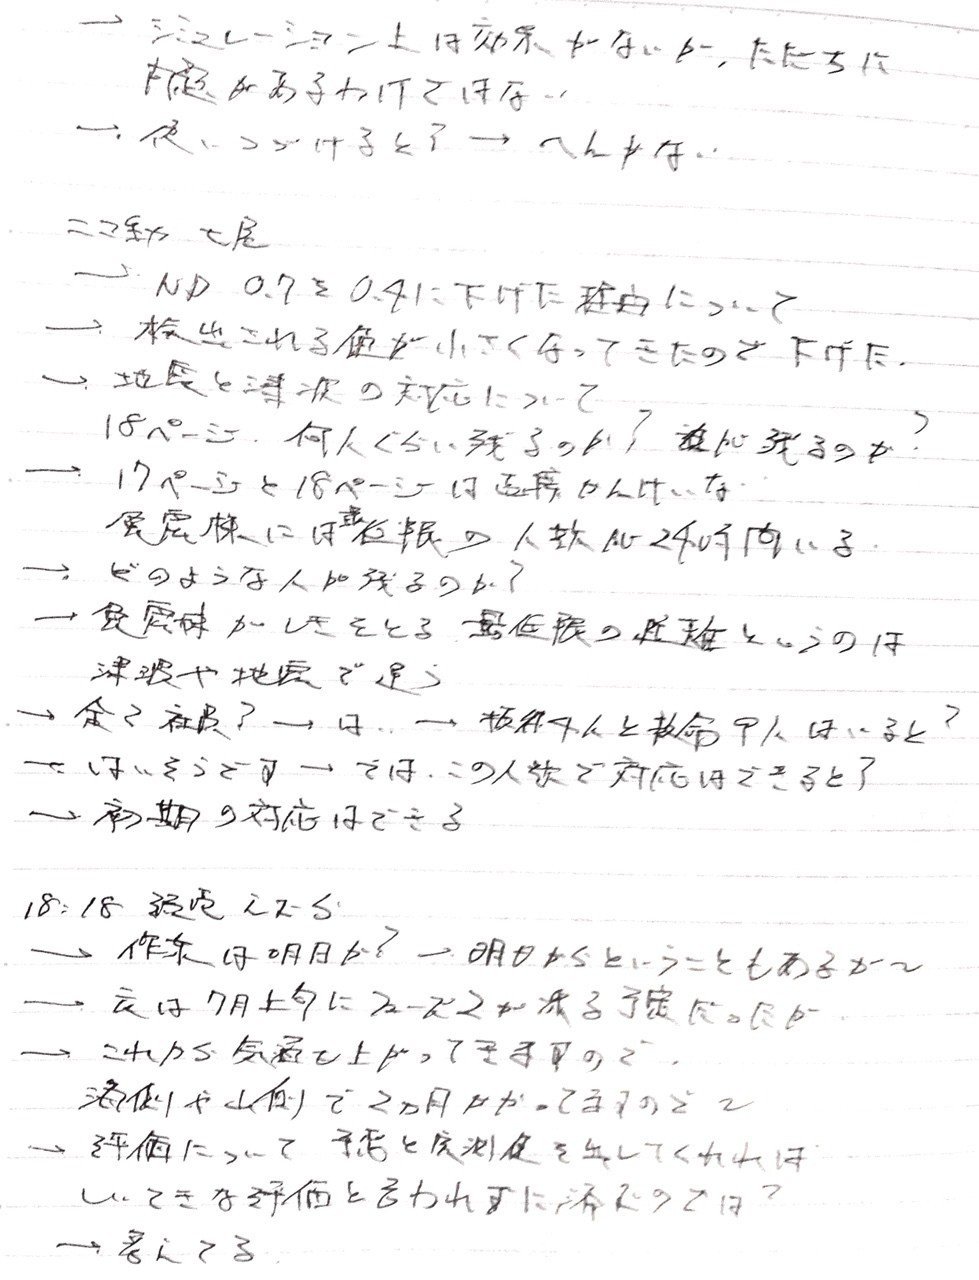 → シミュレーション上は効果がないが、ただちに
問題があるわけではない
→ 使いつづけると? → へんかない
ニコ動 七尾
→ ND 0.7を0.4に下げた理由について
→ 検出される値が小さくなってきたので下げた.
→ 地震と津波の対応について
18ページ. 何人ぐらい残るのか? 誰が残るのか?
→ 17ページと18ページは直接かんけいな
免震棟には最低限の人数が24時間いる
→ どのような人が残るのか?
→ 免震棟がしきをとる 最低限の というのは
津波や地震で違う
→ 全て社員? → は.. → 4人と救命 人はいると?
→ はいそうです → では、この人数で対応はできると?
→ 初期の対応はできる
18:18
→ 作業は明日か? → 明日からということもあるが〜
→ 次は7月上旬にフェーズ2が 予定だったが
→ これから気温も上がってきますので、
海側や山側で2ヵ月かかってますので〜
→ 評価について 予告と実測値を出してくれれば
してきな評価と言われずに済むのでは?
→ 考えてる